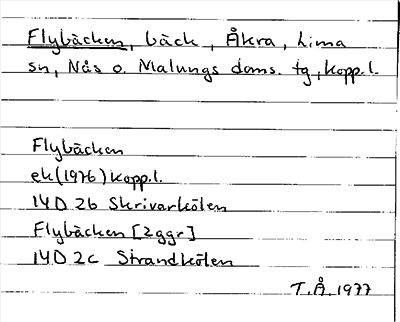 Flybäcken, bäck, Åkra, Lima
sn, Nås o. Malungs doms. tg, Kopp.l.
Flybäcken
ek (1976) Kopp.l.
14D 2b Skrivarkölen
Flybäcken [2ggr]
14D 2c Strandkölen
T.Å. 1977